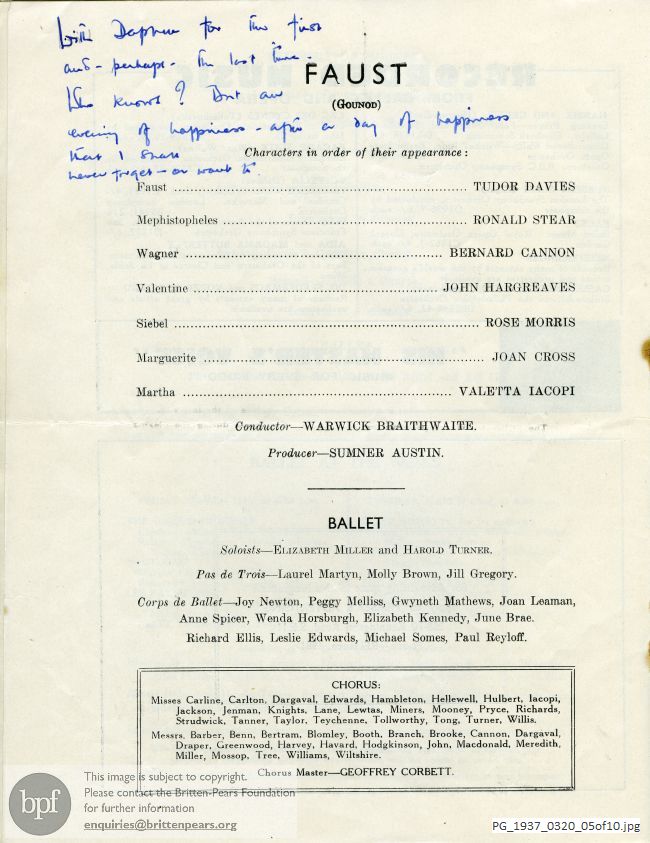 With Daphne for the first
and - perhaps - the last time.
FAUST
Who knows? But an
(GOUNOD)
evening of happiness - after a day of happiness
that I shall
Characters in order of their appearance :
never forget - or want to.
Faust ........ TUDOR DAVIES
Mephistopheles ........ RONALD STEAR
Wagner ........ BERNARD CANNON
Valentine ........ JOHN HARGREAVES
Siebel ........ ROSE MORRIS
Marguerite ........ JOAN CROSS
Martha ........ VALETTA IACOPI
Conductor—WARWICK BRAITHWAITE.
Producer—SUMNER AUSTIN.
BALLET
Soloists—ELIZABETH MILLER and HAROLD TURNER.
Pas de Trois—Laurel Martyn, Molly Brown, Jill Gregory.
Corps de Ballet—Joy Newton, Peggy Melliss, Gwyneth Mathews, Joan Leaman,
Anne Spicer, Wenda Horsburgh, Elizabeth Kennedy, June Brae.
Richard Ellis, Leslie Edwards, Michael Somes, Paul Reyloff.
CHORUS:
Misses Carline, Carlton, Dargaval, Edwards, Hambleton, Hellewell, Hulbert, Iacopi,
Jackson, Jenman, Knights, Lane, Lewtas, Miners, Mooney, Pryce, Richards,
Strudwick, Tanner, Taylor, Teychenne, Tollworthy, Tong, Turner, Willis.
Messrs. Barber, Benn, Bertram, Blomley, Booth, Branch, Brooke, Cannon, Dargaval,
Draper, Greenwood, Harvey, Havard, Hodgkinson, John, Macdonald, Meredith,
Miller, Mossop, Tree, Williams, Wiltshire.
Chorus Master—GEOFFREY CORBETT.
bpf
This image is subject to copyright.
Please contact the Britten-Pears Foundation
for further information
enquiries@brittenpears.org
PG_1937_0320_05of10.jpg